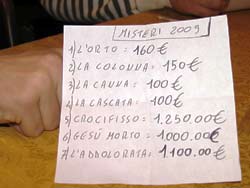 MISTERI 2009
1) L'ORTO: 160 €
2) LA COLONNA: 150 €
3) LA CANNA: 100 €
4) LA CASCATA: 100 €
5) CROCIFISSO: 1.250.00 €
6) GESÚ MORTO: 1000.00 €
7) L'ADDOLORATA: 1100.00 €